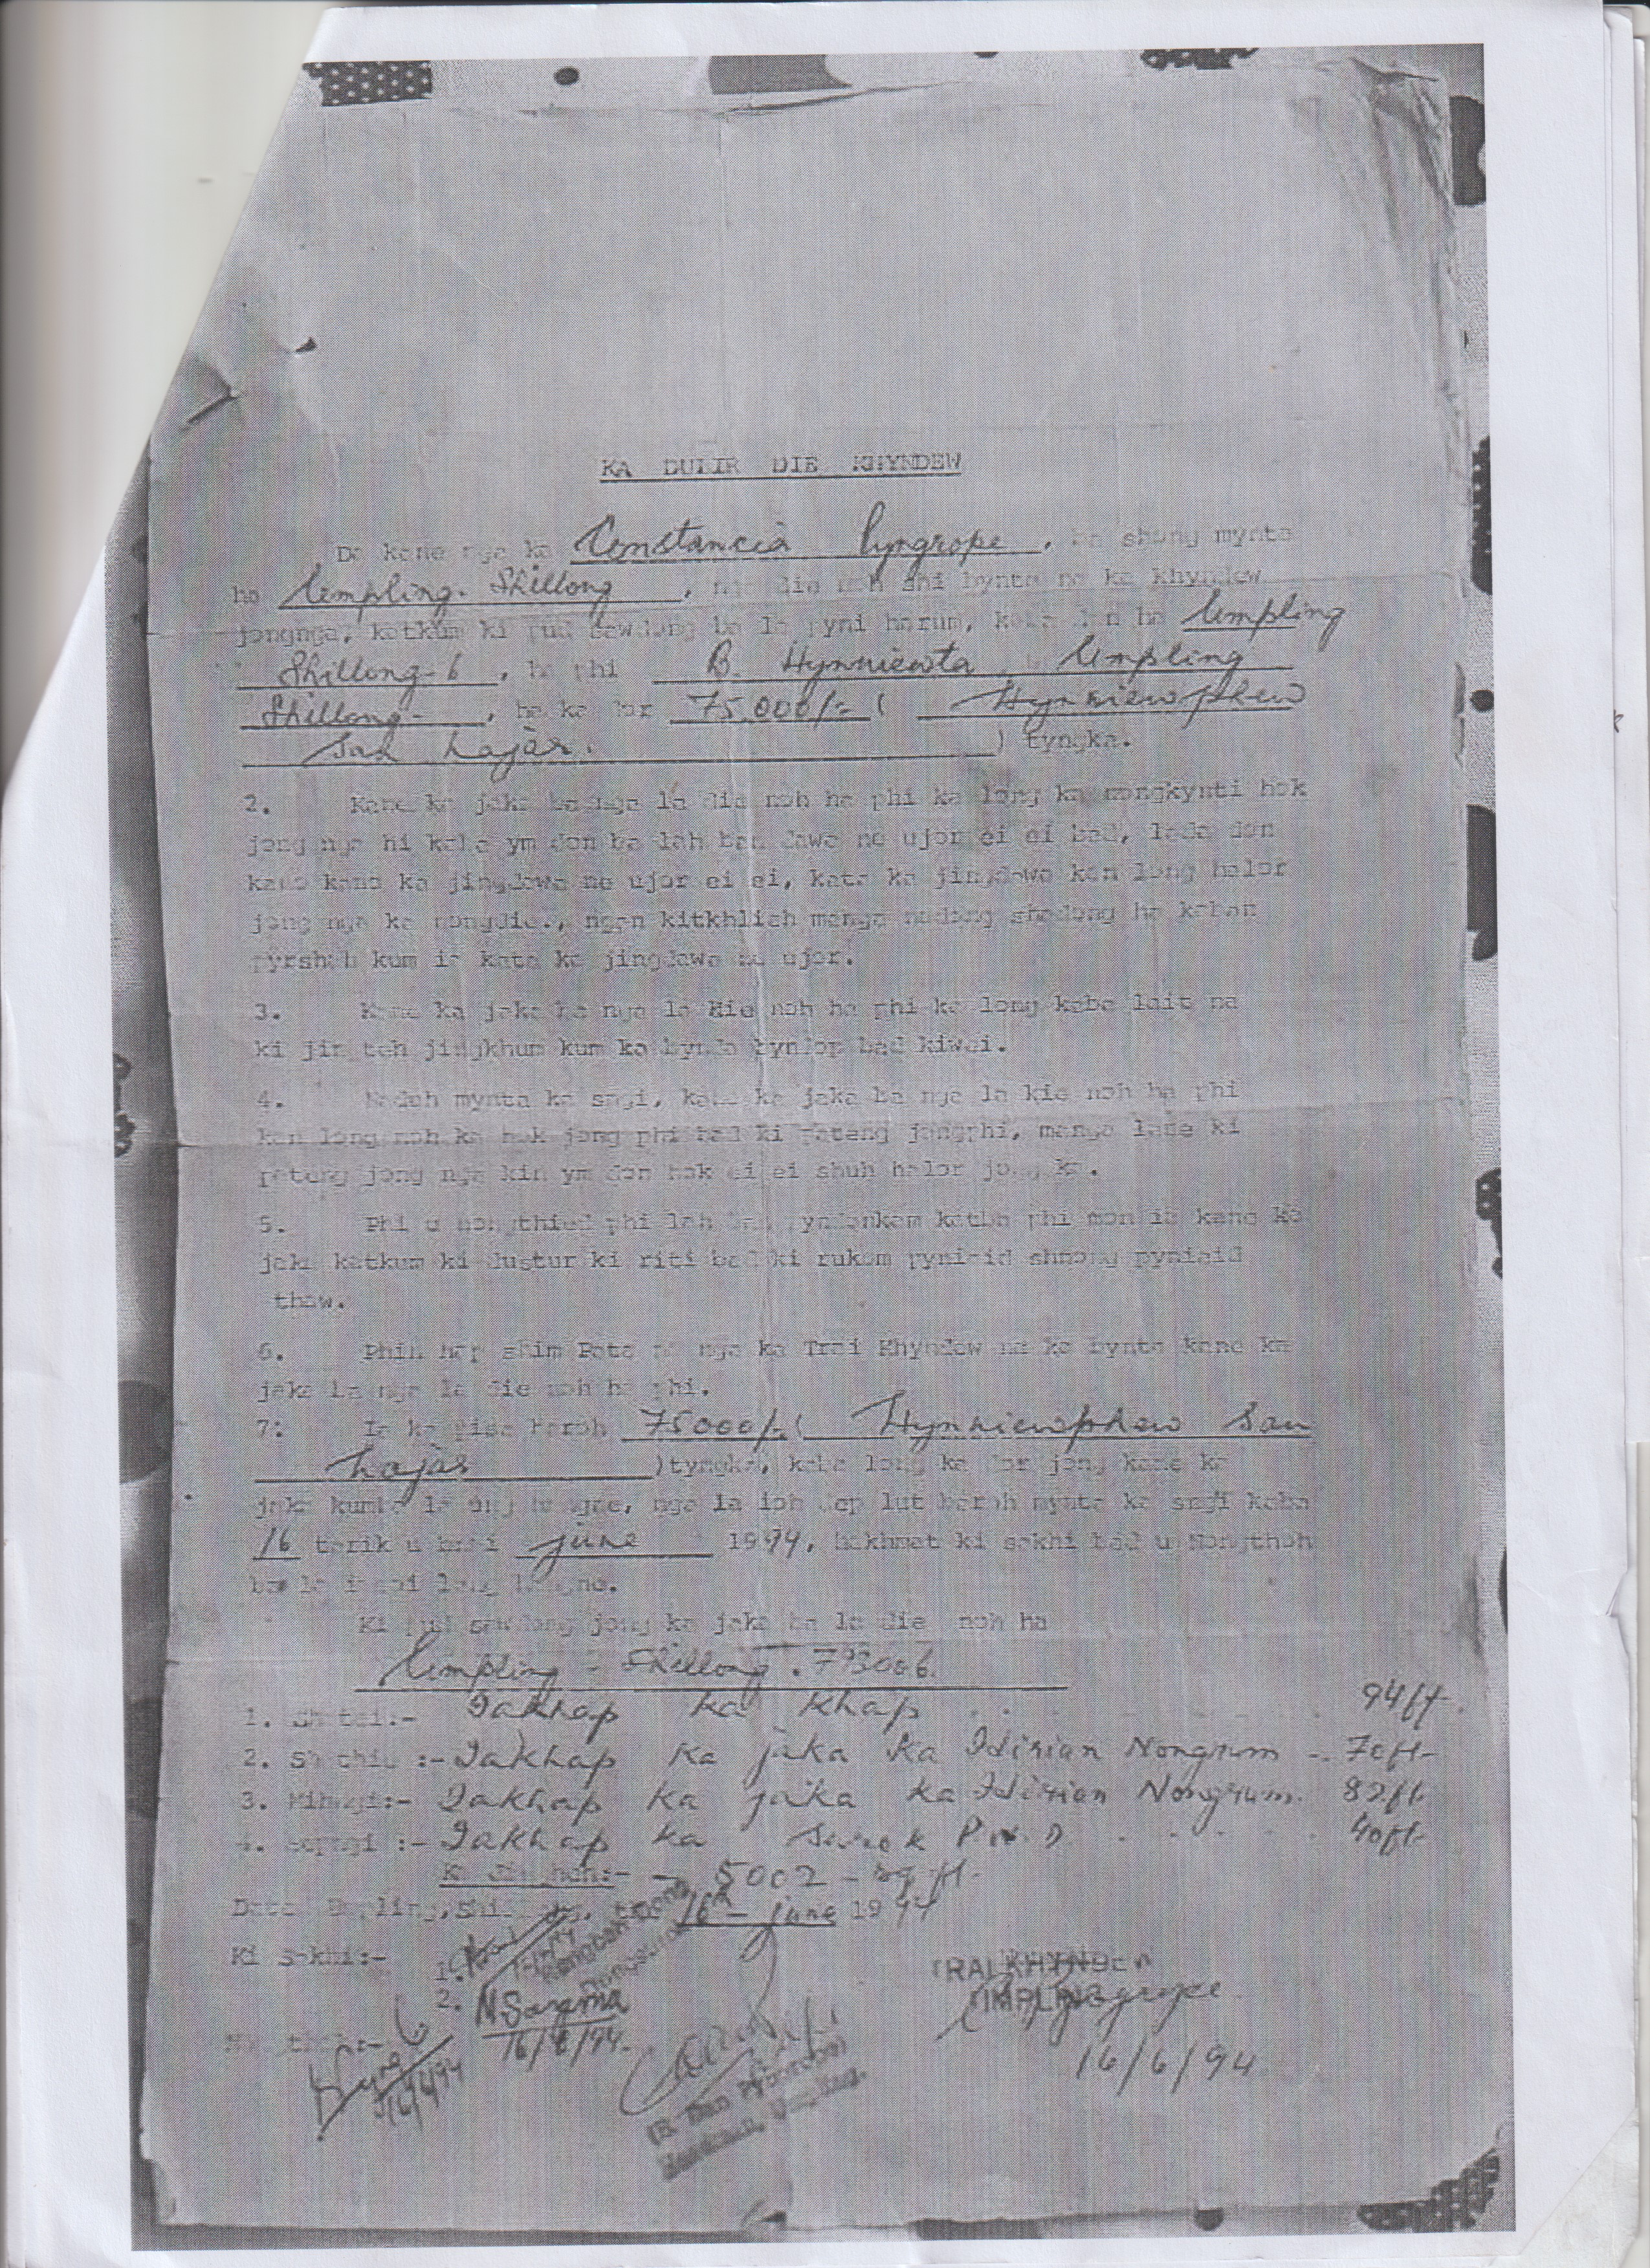 KA DULIR DIE KHYNDEW
Da kane nga ka Constancia Pyngrope, ba shong mynta
ha Umpling. Shillong, nga die noh shi bynta na ka khyndew
jongnga, katkum ki pud sawdong ba la pyni harum, kaba don ha Umpling
Shillong-6, ha phi B. Hynniewta Umpling
Shillong-, ha ka dor 75,000/- ( Hynniewphew
San hajar. ) tyngka.
2. Kane ka jaka ba nga la die noh ha phi ka long ka nongkynti hok
jong nga hi kaba ym don ba lah ban dawa ne ujor ei ei bad, lada don
kano kano ka jingdawa ne ujor ei ei, kata ka jingdawa kan long halor
jong nga ka nongdie., ngan kitkhlieh manga nadong shadong ha kaban
pyrshah kum ia kata ka jingdawa ne ujor.
3. Kane ka jaka ba nga la die noh ha phi ka long kaba lait na
ki jingteh jingkhum kum ka bynda bynlop bad kiwei.
4. Naduh mynta ka sngi, kane ka jaka ba nga la kie noh ha phi
kan long noh ka hok jong phi bad ki pateng jongphi, manga lane ki
pateng jong nga kin ym don hok ei ei shuh halor jong ka.
5. Phi u nongthied phi lah ban pyndonkam katba phi mon ia kane ka
jaka katkum ki dustur ki riti bad ki rukom pyniaid shnong pyniaid
thaw.
6. Phin hap shim Pata na nga ka Trai Khyndew na ka bynta kane ka
jaka ba nga la die noh ha phi.
7: Ia ka pisa baroh 75000/-( Hynniewphew San
hajar )tyngka, kaba long ka dor jong kane ka
jaka kumba la ong haneng, nga la ioh dep lut baroh mynta ka sngi kaba
16 tarik u bnai june 1994, hakhmat ki sakhi bad u Nongthoh
ba la iasoi lang hangne.
Ki pud sawdong jong ka jaka ba la die noh ha
Umpling - Shillong. 793006.
1. Shatei:- Iakhap ka Khap . . . . 94ft.
2. Shathie :- Iakhap ka jaka ka Hirian Nongrum -. 70ft-
3. Mihngi:- Iakhap ka jaka ka Hirian Nongrum. 82ft.
4. Sepngi :- Iakhap ka Surok P.W.D. . . . . 40ft-
Ka Jingheh:- - 5002 - sq ft.
Date Umpling, Shillong, the 16th- june 1994
Ki Sakhi:- 1.
2. N. Sarama
16/6/94.
TRAI KHYNDEW
UMPLING
C Pyngrope
16/6/94
Nongthoh:-
16/6/94